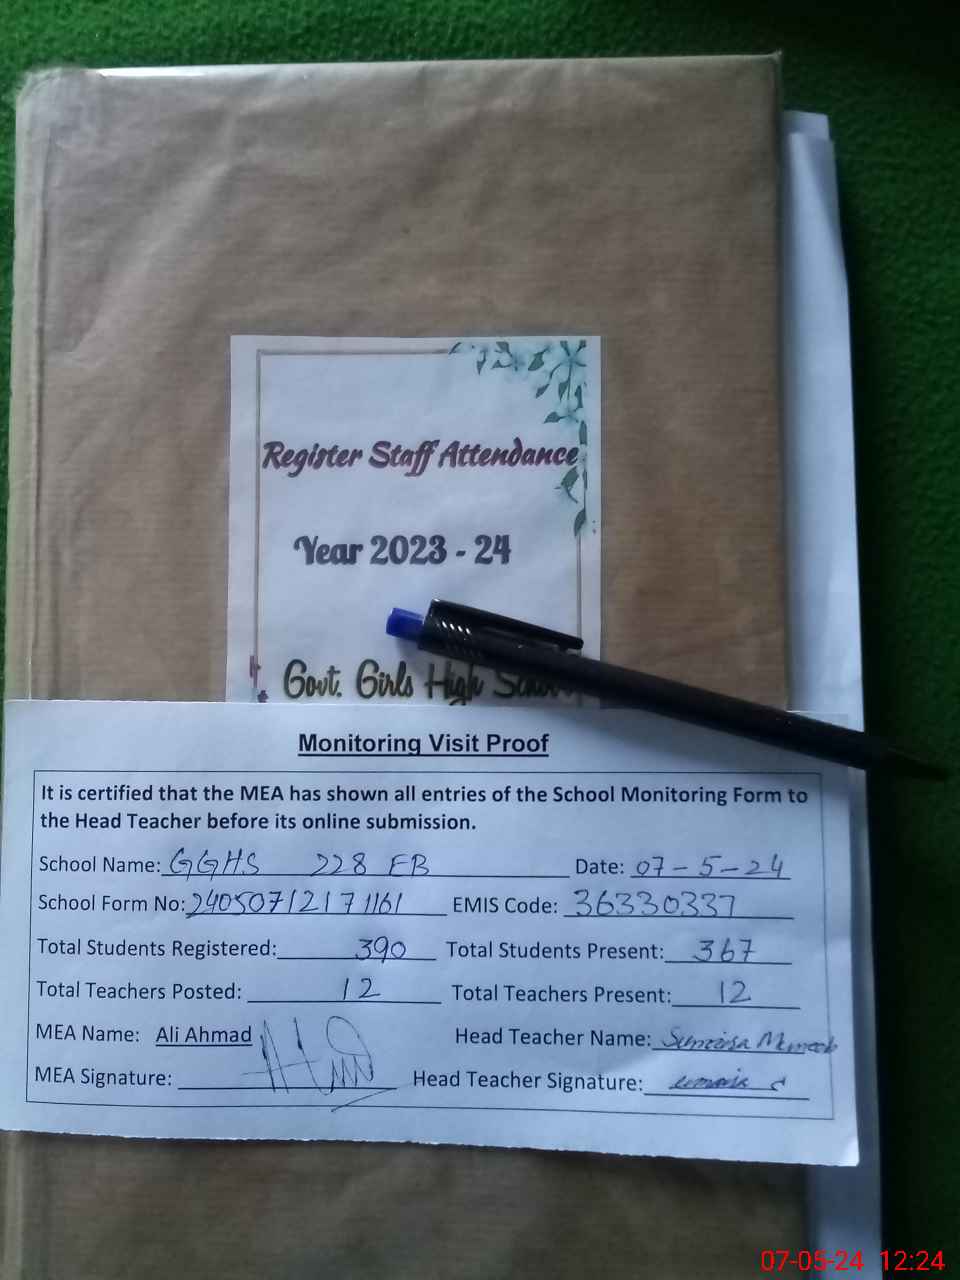 Register Staff Attendance
Year 2023 - 24
Govt. Girls High School
Monitoring Visit Proof
It is certified that the MEA has shown all entries of the School Monitoring Form to
the Head Teacher before its online submission.
School Name: GGHS 228 EB Date: 07-5-24
School Form No: 24050712171161 EMIS Code: 36330337
Total Students Registered: 390 Total Students Present: 367
Total Teachers Posted: 12 Total Teachers Present: 12
MEA Name: Ali Ahmad Head Teacher Name:
MEA Signature: Head Teacher Signature:
07-05-24 12:24